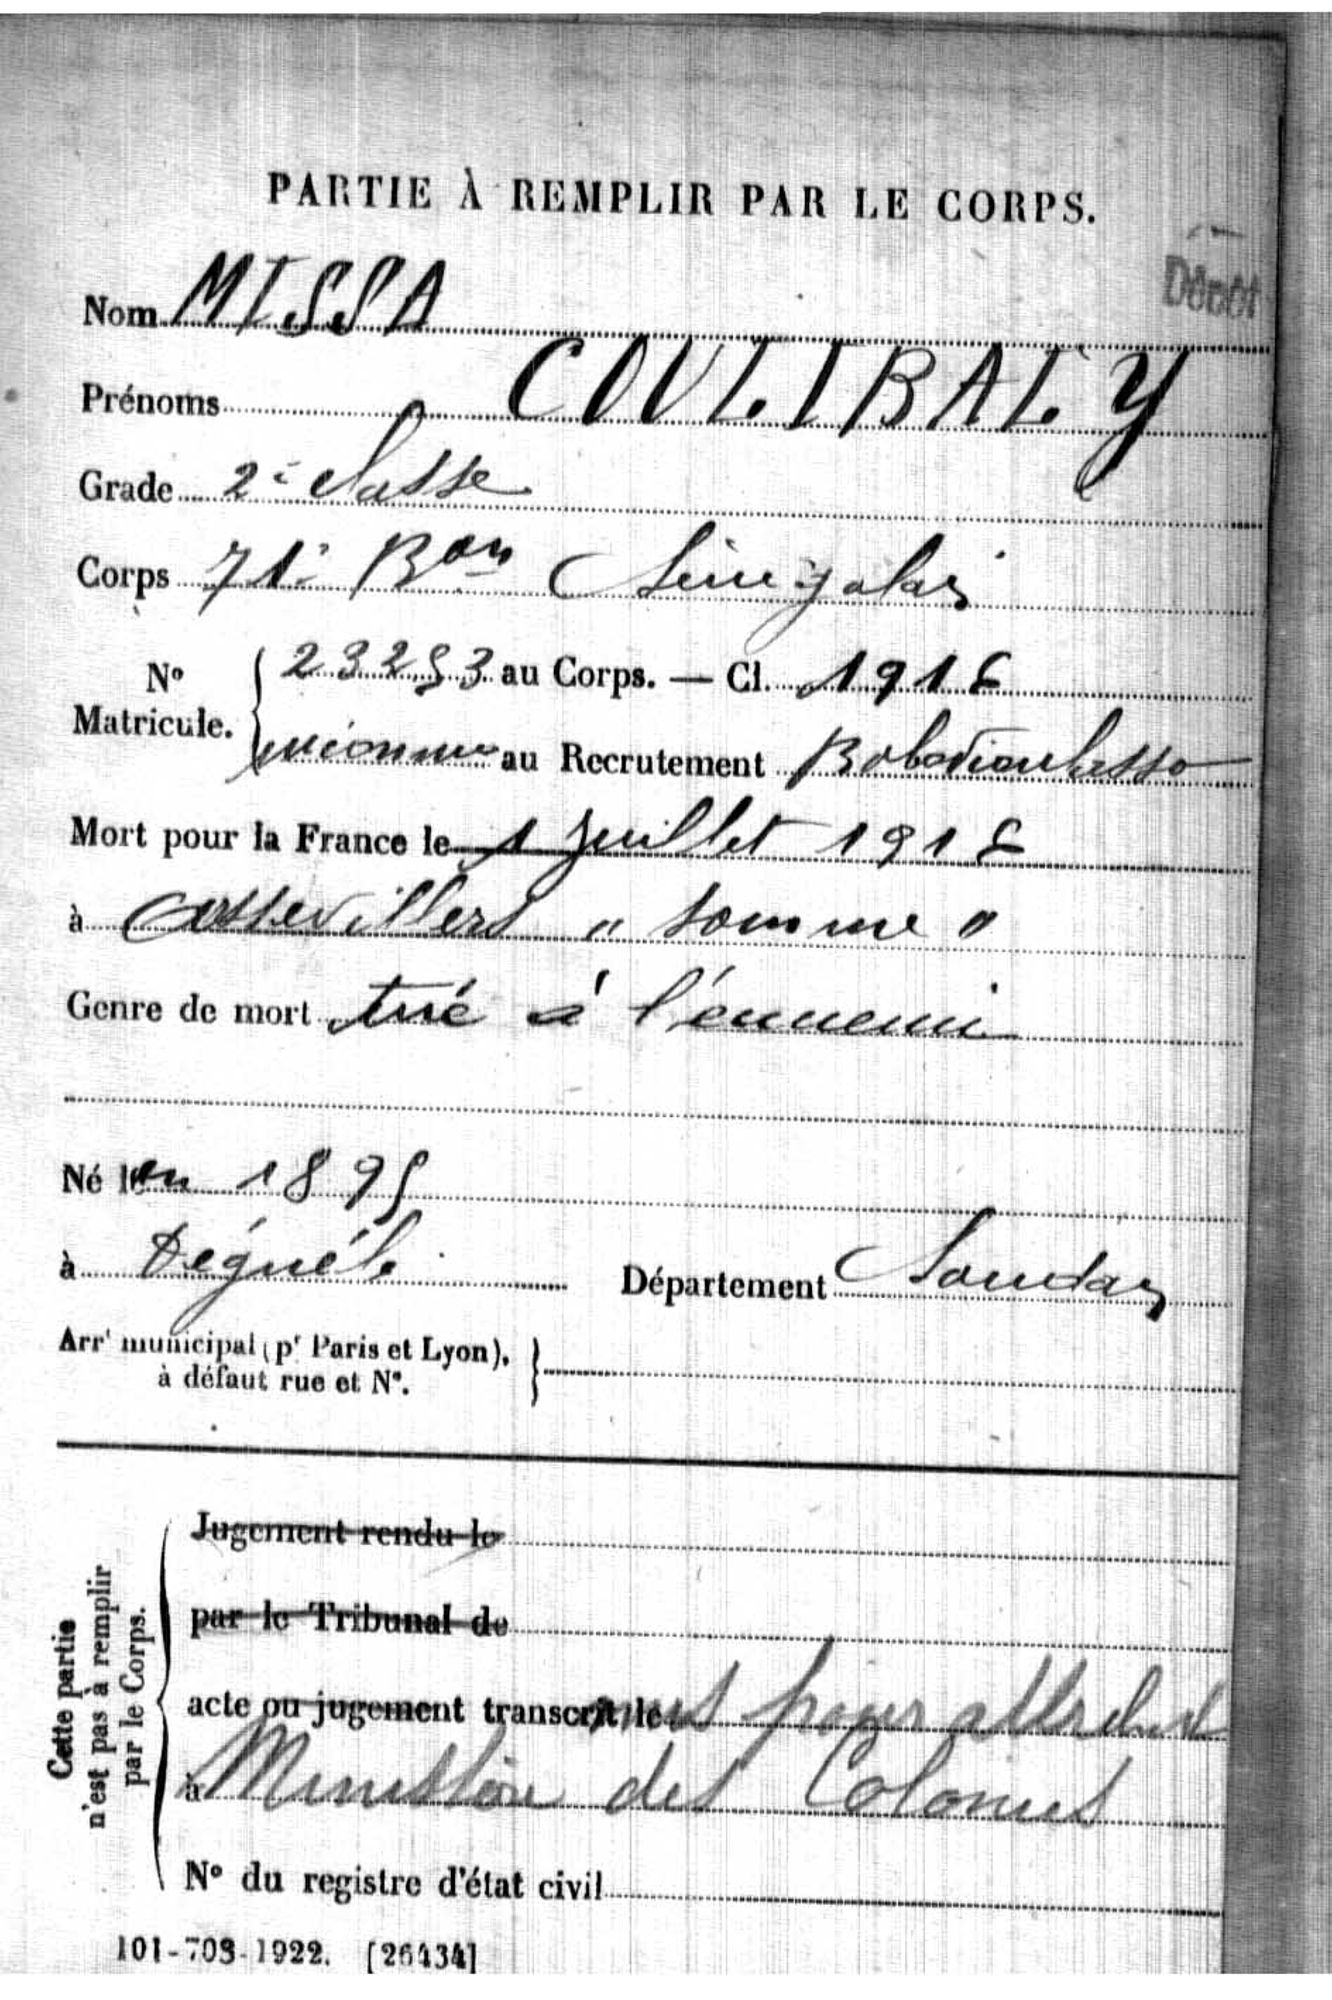 PARTIE À REMPLIR PAR LE CORPS.
Dépôt
Nom MISSA
Prénoms COULIBALY
Grade 2e classe
Corps 71e Bon Sénégalais
No Matricule. 23253 au Corps. — Cl. 1916
inconnu au Recrutement Bobodioulasso
Mort pour la France le 1 Juillet 1916
à Assevillers "Somme"
Genre de mort tué à l'ennemi
Né le en 1895
à Déguélé Département Soudan
Arrt municipal (pr Paris et Lyon),
à défaut rue et No.
Cette partie
n'est pas à remplir
par le Corps.
Jugement rendu le
par le Tribunal de
acte ou jugement transcrit le pour
à Ministère des Colonies
No du registre d'état civil
101-708-1922. [26434]